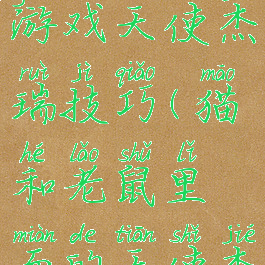 游戏天使杰
ruì jì qiǎo māo
瑞技巧(猫
hé lǎo shǔ lǐ
和老鼠里
miàn de tiān shǐ jié
面的天使杰